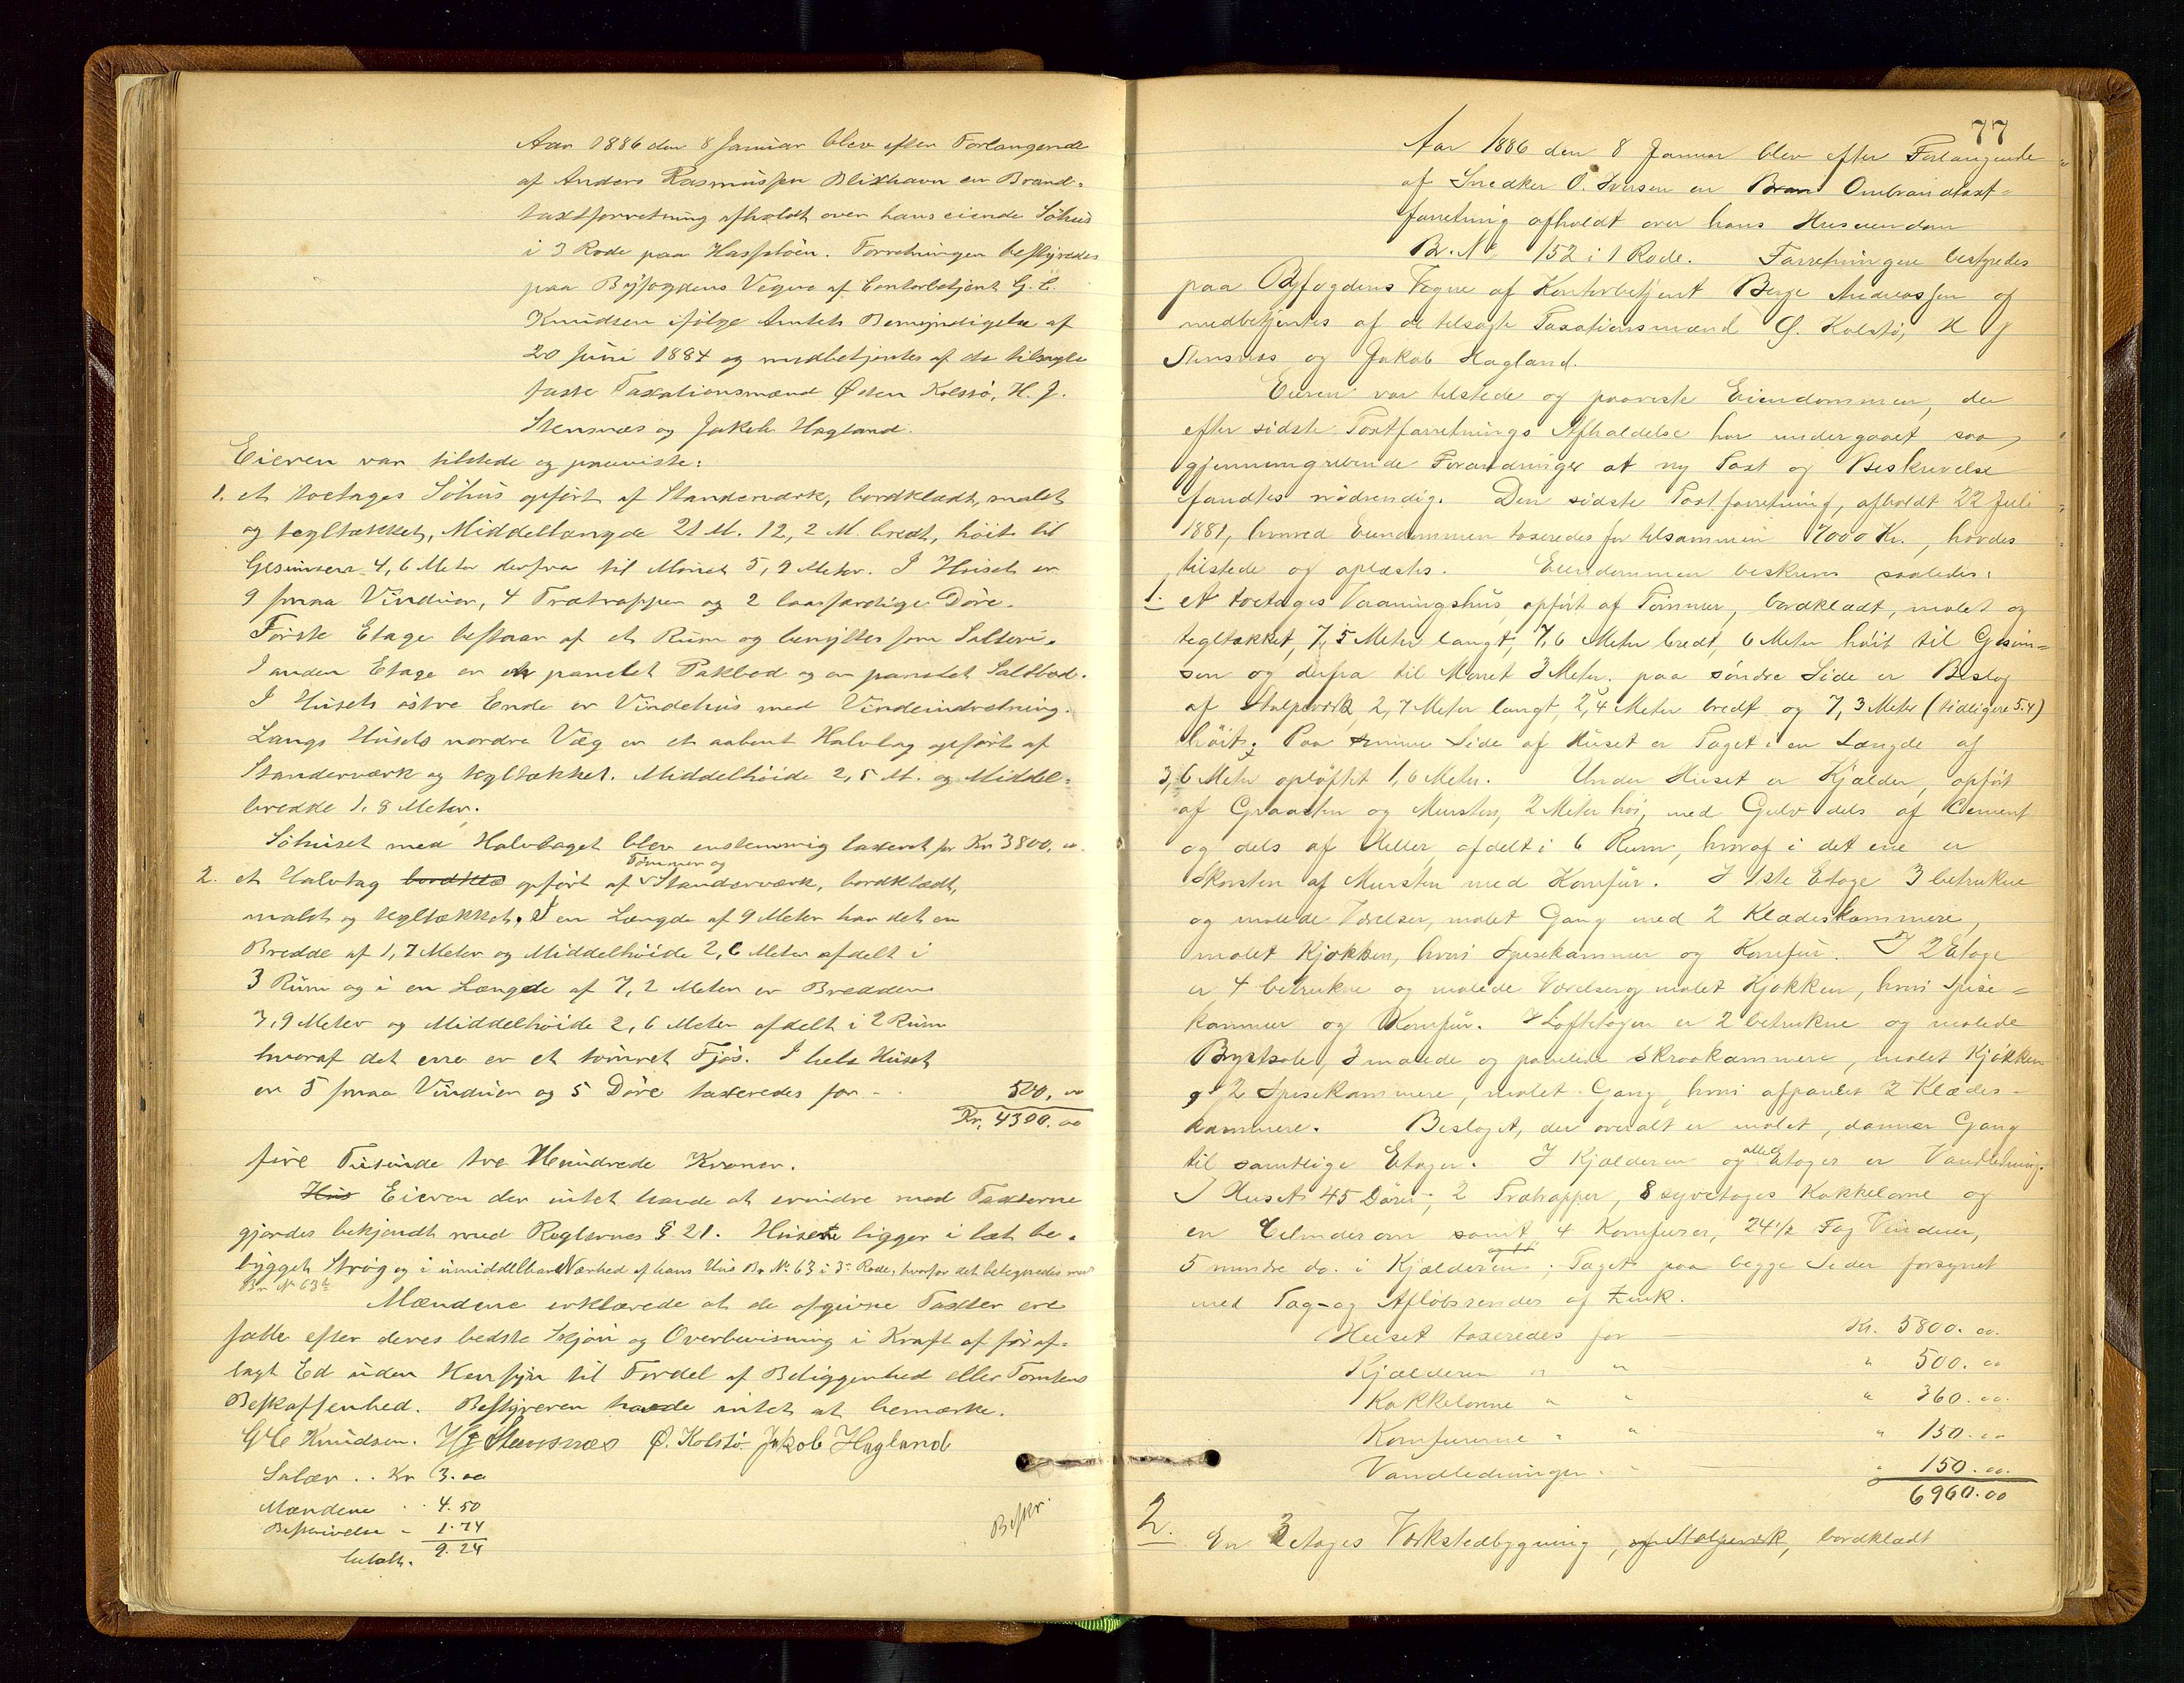 Aar 1886 den 8 Januar blev efter Forlangende
af Anders Rasmussen Blixhavn en Brand-
taxtforretning afholdt over hans eiende Söhus
i 3 Rode paa Hasseløen. Forretningen bestyredes
paa Byfogdens Vegne af Contorbetjent G. C.
Knudsen ifölge Amtets Bemyndigelse af
20 Juni 1884 og medbetjentes af de tilsagte
faste Taxationsmænd Østen Kolstö, H. J.
Stensnæs og Jakob Hagland.
Eieren var tilstede og paaviste:
1. et toetages Söhus opfört af Standerværk, bordklædt, malet
og tegltækket, Middellængde 21 M. 12,2 M. bredt, höit til
Gesimsen 4,6 Meter derfra til Mönet 5,9 Meter. I Huset er
9 smaa Vinduer, 4 Trætrapper og 2 laasfærdige Döre.
Förste Etage bestaar af et Rum og benyttes som Salteri.
I anden Etage er en panelet Pakbod og en panelet Saltbod.
I Husets östre Ende er Vindehus med Vindeindretning.
Langs Husets nordre Væg er et aabent Halvtag opfört af
Standerværk og tegltækket. Middelhöide 2,5 M. og Middel-
bredde 1,8 Meter.
Söhuset med Halvtaget blev enstemmig taxeret for Kr 3800. 00.
Tömmer og
2. et Halvtag bordklæ opfört af Standerværk, bordklædt,
malet og tegltækket. I en Længde af 9 Meter har det en
Bredde af 1,7 Meter og Middelhöide 2,6 Meter afdelt i
3 Rum og i en Længde af 7,2 Meter er Bredden
3,9 Meter og Middelhöide 2,6 Meter afdelt i 2 Rum
hvoraf det ene er et tömret Fjös. I hele Huset
er 5 smaa Vinduer og 5 Döre taxeredes for - - 500. 00
Kr. 4300. 00
fire Tusinde tre Hundrede Kroner.
Hus Eieren der intet havde at erindre mod Taxterne
gjordes bekjendt med Reglernes § 21. Husene ligger i tæt be-
bygget Strög og i umiddelbar Nærhed af hans Hus Br. No 63 i 3die Rode, hvorfor det betegnedes med
Br No 63b
Mændene erklærede at de afgivne Taxter ere
satte efter deres bedste Skjön og Overbevisning i Kraft af för af-
lagt Ed uden Hensyn til Fordel af Beliggenhed eller Tomtens
Beskaffenhed. Bestyreren havde intet at bemærke.
G C Knudsen. H J Stensnæs Ø. Kolstö Jakob Hagland
Salær . . Kr 3. 00
Mændene . . 4. 50
Beskrivelse - 1. 74
9. 24
betalt.
Beskr.
77
Aar 1886 den 8 Januar blev efter Forlangende
af Snedker O. Iversen en Bran Ombrandtaxt-
forretning afholdt over hans Huseiendom
Br. No 152 i 1 Rode. Forretningen bestyredes
paa Byfogdens Vegne af Kontorbetjent Berge Andreassen og
medbetjentes af de tilsagte Taxationsmænd Ø. Kolstö, H J
Stensnæs og Jakob Hagland.
Eieren var tilstede og paaviste Eiendommen, der
efter sidste Taxtforretnings Afholdelse har undergaaet saa
gjennemgribende Forandringer at ny Taxt og Beskrivelse
fandtes nödvendig. Den sidste Taxtforretning, afholdt 22 Juli
1881, hvorved Eiendommen taxeredes for tilsammen 7000 Kr., havdes
tilstede og oplæstes. Eiendommen beskrives saaledes:
1. et toetages Vaaningshus, opfört af Tömmer, bordklædt, malet og
tegltækket, 7,5 Meter langt, 7,6 Meter bredt, 6 Meter höit til Gesim-
sen og derfra til Mönet 3 Meter. paa söndre Side er Beslag
af Stolpeværk 2,7 Meter langt, 2,4 Meter bredt og 7,3 Meter (tidligere 5.4)
höit. Paa samme Side af Huset er Taget i en Længde af
3,6 Meter oplöftet 1,6 Meter. Under Huset er Kjælder, opfört
af Graasten og Mursten, 2 Meter höi, med Gulv dels af Cement
og dels af Heller, afdelt i 6 Rum, hvoraf i det ene er
Skorsten af Mursten med Komfür. I 1ste Etage 3 betrukne
og malede Værelser, malet Gang med 2 Klædeskammere,
malet Kjökken, hvori Spisekammer og Komfür. I 2 Etage
er 4 betrukne og malede Værelser og malet Kjökken, hvori Spise-
kammer og Komfür. I Loftetagen er 2 betrukne og malede
Brystsale, 3 malede og panelede Skraakammere, malet Kjökken
og 2 Spisekammere, malet Gang, hvori afpanlet 2 Klædes-
kammere. Beslaget, der overalt er malet, danner Gang
til samtlige Etager. I Kjælderen og alle Etager er Vandledning.
I Huset 45 Döre, 2 Trætrapper, 8 syvetages Kakkelovne og
en Cilinderovn samt 4 Komfurer, 24 1/2 Fag Vinduer,
5 mindre do. i Kjælderen. Taget paa begge Sider forsynet
med Tag- og Aflöbsrender af Zink.
Huset taxeredes for Kr. 5800. 00.
Kjælderen " " " 500. 00
Kakkelovne " " " 360. 00.
Komfurerne " " " 150. 00
Vandledningen " " " 150. 00.
6960. 00
2. En 3 etages Værkstedbygning, af Stolpeværk, bordklædt